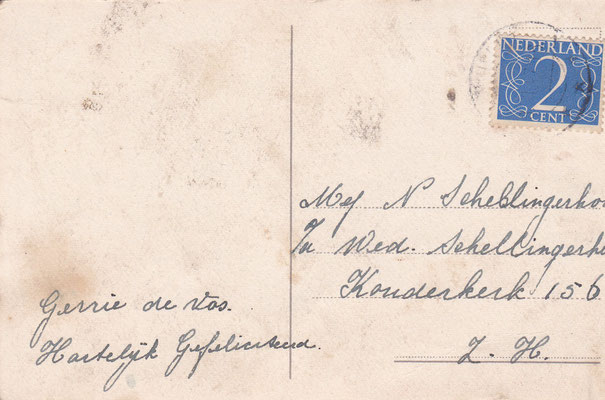 NEDERLAND
2
CENT
Mej N Schellingerhou
p/a Wed. Schellingerh
Kouderkerk 156
Z. H.
Gerrie de Vos.
Hartelijk Gefeliciteerd.